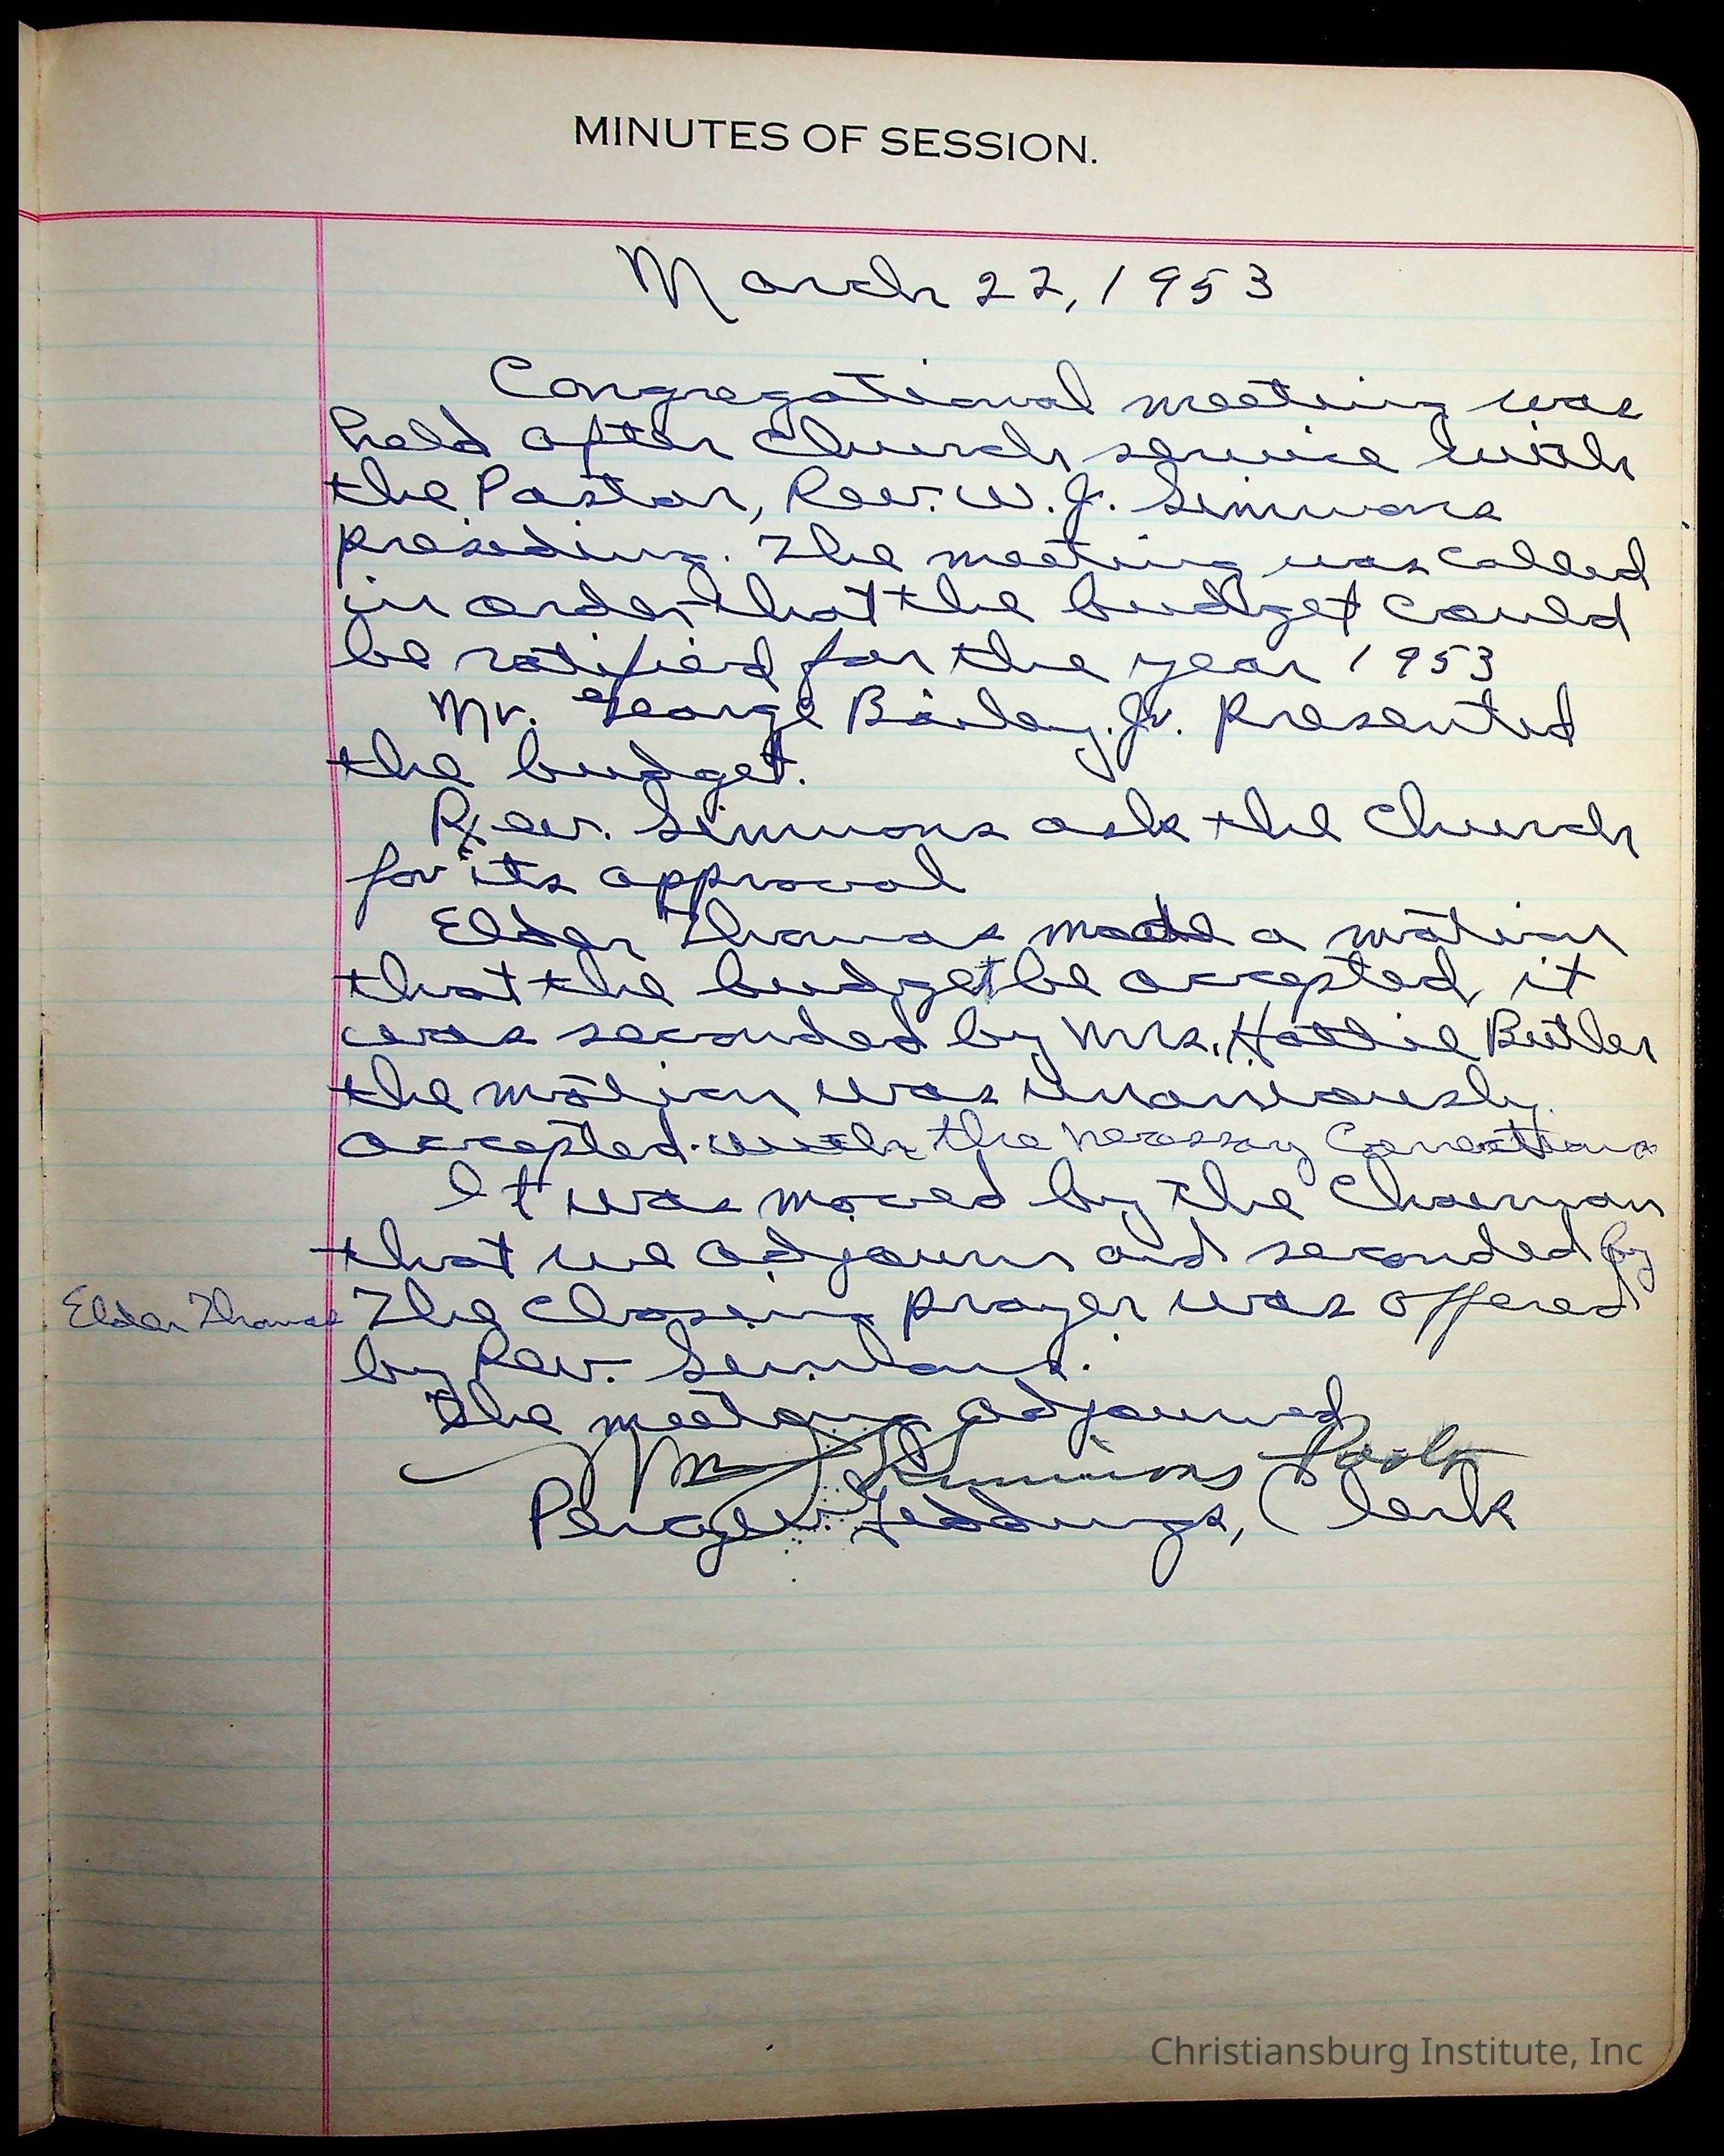 MINUTES OF SESSION.
March 22, 1953
Congregational meeting was
held after church service with
the Pastor, Rev. W. J. Simmons
presiding. The meeting was called
in order that the budget could
be ratified for the year 1953
Mr. George Bailey, Jr. presented
the budget.
Rev. Simmons ask the Church
for its approval
Elder Thomas made a motion
that the budget be accepted, it
was seconded by Mrs. Hattie Butler
the motion was unaniously
accepted. with the necessay Corrections
It was moved by the Chairman
that we adjourn and seconded by
Elder Thomas The closing prayer was offered
by Rev. Simmons.
The meeting adjourned
Wm J Simmons
Percy Giddings, Clerk
Christiansburg Institute, Inc